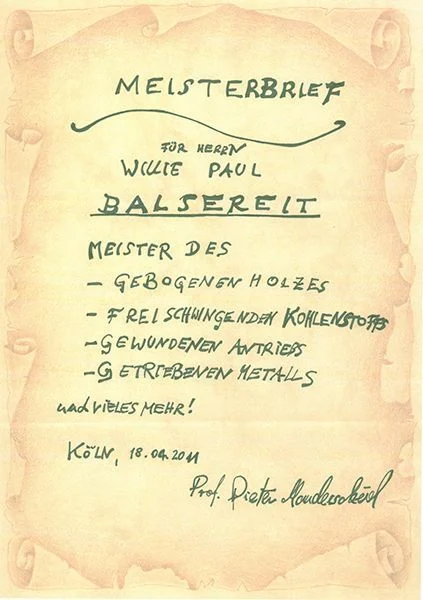 MEISTERBRIEF
FÜR HERRN
WILLIE PAUL
BALSEREIT
MEISTER DES
- GEBOGENEN HOLZES
- FREISCHWINGENDEN KOHLENSTOFFS
- GEWUNDENEN ANTRIEBS
- GETRIEBENEN METALLS
und VIELES MEHR!
KÖLN, 18.04.2011
Prof. Dieter